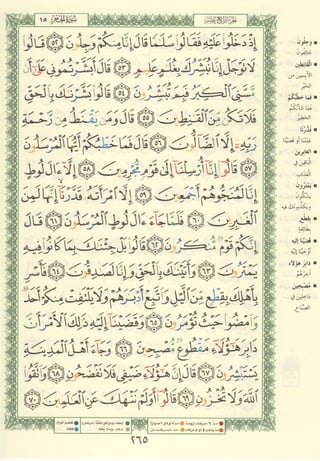 سورة الحجر ١٥
الجزء الرابع عشر
إِذْ دَخَلُوا۟ عَلَيْهِ فَقَالُوا۟ سَلَـٰمًا قَالَ إِنَّا مِنكُمْ وَجِلُونَ ٥٢ قَالُوا۟
لَا تَوْجَلْ إِنَّا نُبَشِّرُكَ بِغُلَـٰمٍ عَلِيمٍ ٥٣ قَالَ أَبَشَّرْتُمُونِى عَلَىٰٓ أَن
مَّسَّنِىَ ٱلْكِبَرُ فَبِمَ تُبَشِّرُونَ ٥٤ قَالُوا۟ بَشَّرْنَـٰكَ بِٱلْحَقِّ
فَلَا تَكُن مِّنَ ٱلْقَـٰنِطِينَ ٥٥ قَالَ وَمَن يَقْنَطُ مِن رَّحْمَةِ
رَبِّهِۦٓ إِلَّا ٱلضَّآلُّونَ ٥٦ قَالَ فَمَا خَطْبُكُمْ أَيُّهَا ٱلْمُرْسَلُونَ
٥٧ قَالُوٓا۟ إِنَّآ أُرْسِلْنَآ إِلَىٰ قَوْمٍ مُّجْرِمِينَ ٥٨ إِلَّآ ءَالَ لُوطٍ
إِنَّا لَمُنَجُّوهُمْ أَجْمَعِينَ ٥٩ إِلَّا ٱمْرَأَتَهُۥ قَدَّرْنَآ إِنَّهَا لَمِنَ
ٱلْغَـٰبِرِينَ ٦٠ فَلَمَّا جَآءَ ءَالَ لُوطٍ ٱلْمُرْسَلُونَ ٦١ قَالَ
إِنَّكُمْ قَوْمٌ مُّنكَرُونَ ٦٢ قَالُوا۟ بَلْ جِئْنَـٰكَ بِمَا كَانُوا۟ فِيهِ
يَمْتَرُونَ ٦٣ وَأَتَيْنَـٰكَ بِٱلْحَقِّ وَإِنَّا لَصَـٰدِقُونَ ٦٤ فَأَسْرِ
بِأَهْلِكَ بِقِطْعٍ مِّنَ ٱلَّيْلِ وَٱتَّبِعْ أَدْبَـٰرَهُمْ وَلَا يَلْتَفِتْ مِنكُمْ أَحَدٌ
وَٱمْضُوا۟ حَيْثُ تُؤْمَرُونَ ٦٥ وَقَضَيْنَآ إِلَيْهِ ذَٰلِكَ ٱلْأَمْرَ أَنَّ
دَابِرَ هَـٰٓؤُلَآءِ مَقْطُوعٌ مُّصْبِحِينَ ٦٦ وَجَآءَ أَهْلُ ٱلْمَدِينَةِ
يَسْتَبْشِرُونَ ٦٧ قَالَ إِنَّ هَـٰٓؤُلَآءِ ضَيْفِى فَلَا تَفْضَحُونِ ٦٨ وَٱتَّقُوا۟
ٱللَّهَ وَلَا تُخْزُونِ ٦٩ قَالُوٓا۟ أَوَلَمْ نَنْهَكَ عَنِ ٱلْعَـٰلَمِينَ ٧٠
وَجِلُونَ
خائفون
القانطين
الآيسين من
الخير
فما خطبكم
فما شأنكم
الخطير
قدرنا
الغابرين
الباقين في
العذاب
يمترون
يشكون
ويكذبونك فيه
بقطع
بطائفة
قضينا إليه
أوحينا إليه
دابر هؤلاء
آخرهم
مصبحين
داخلين في
الصباح
٢٦٥